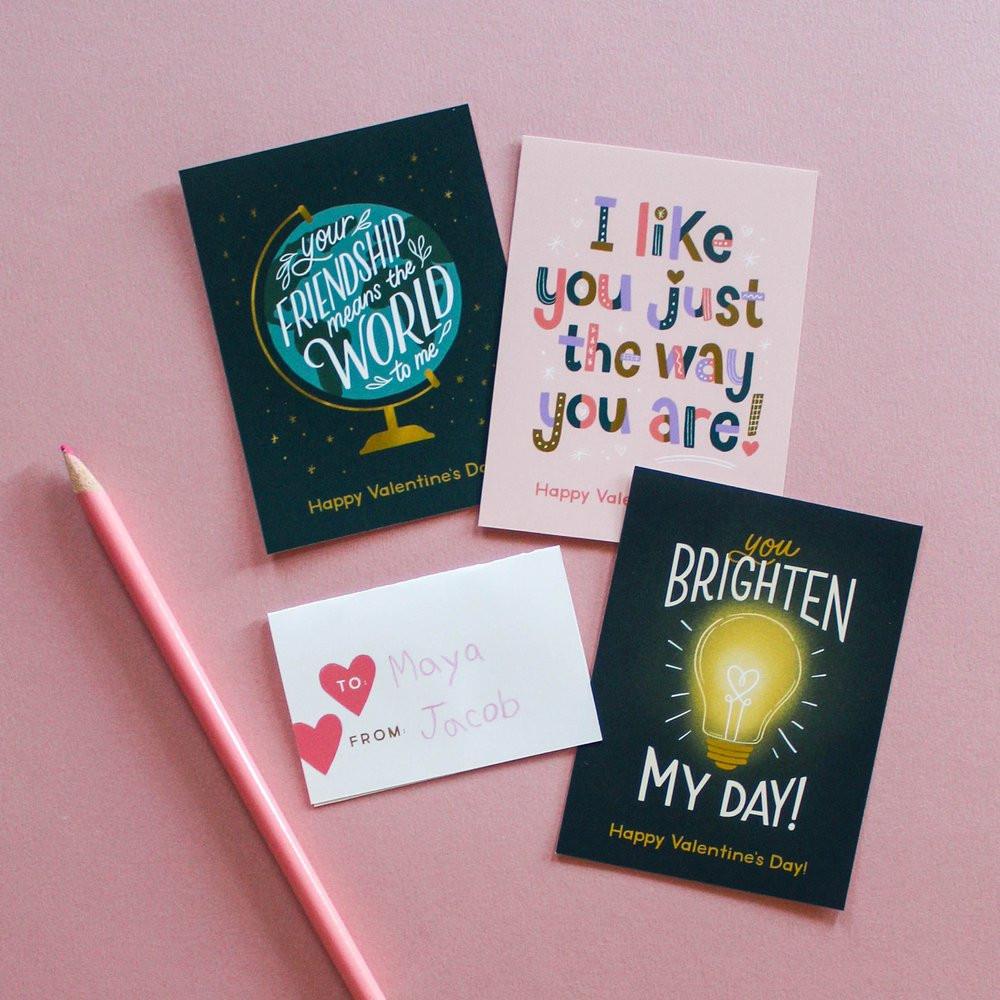 your
FRIENDSHIP
means the
WORLD
to me
Happy Valentine's Da
I like
you just
the way
you are!
Happy Vale
you
BRIGHTEN
MY DAY!
Happy Valentine's Day!
TO: Maya
FROM: Jacob